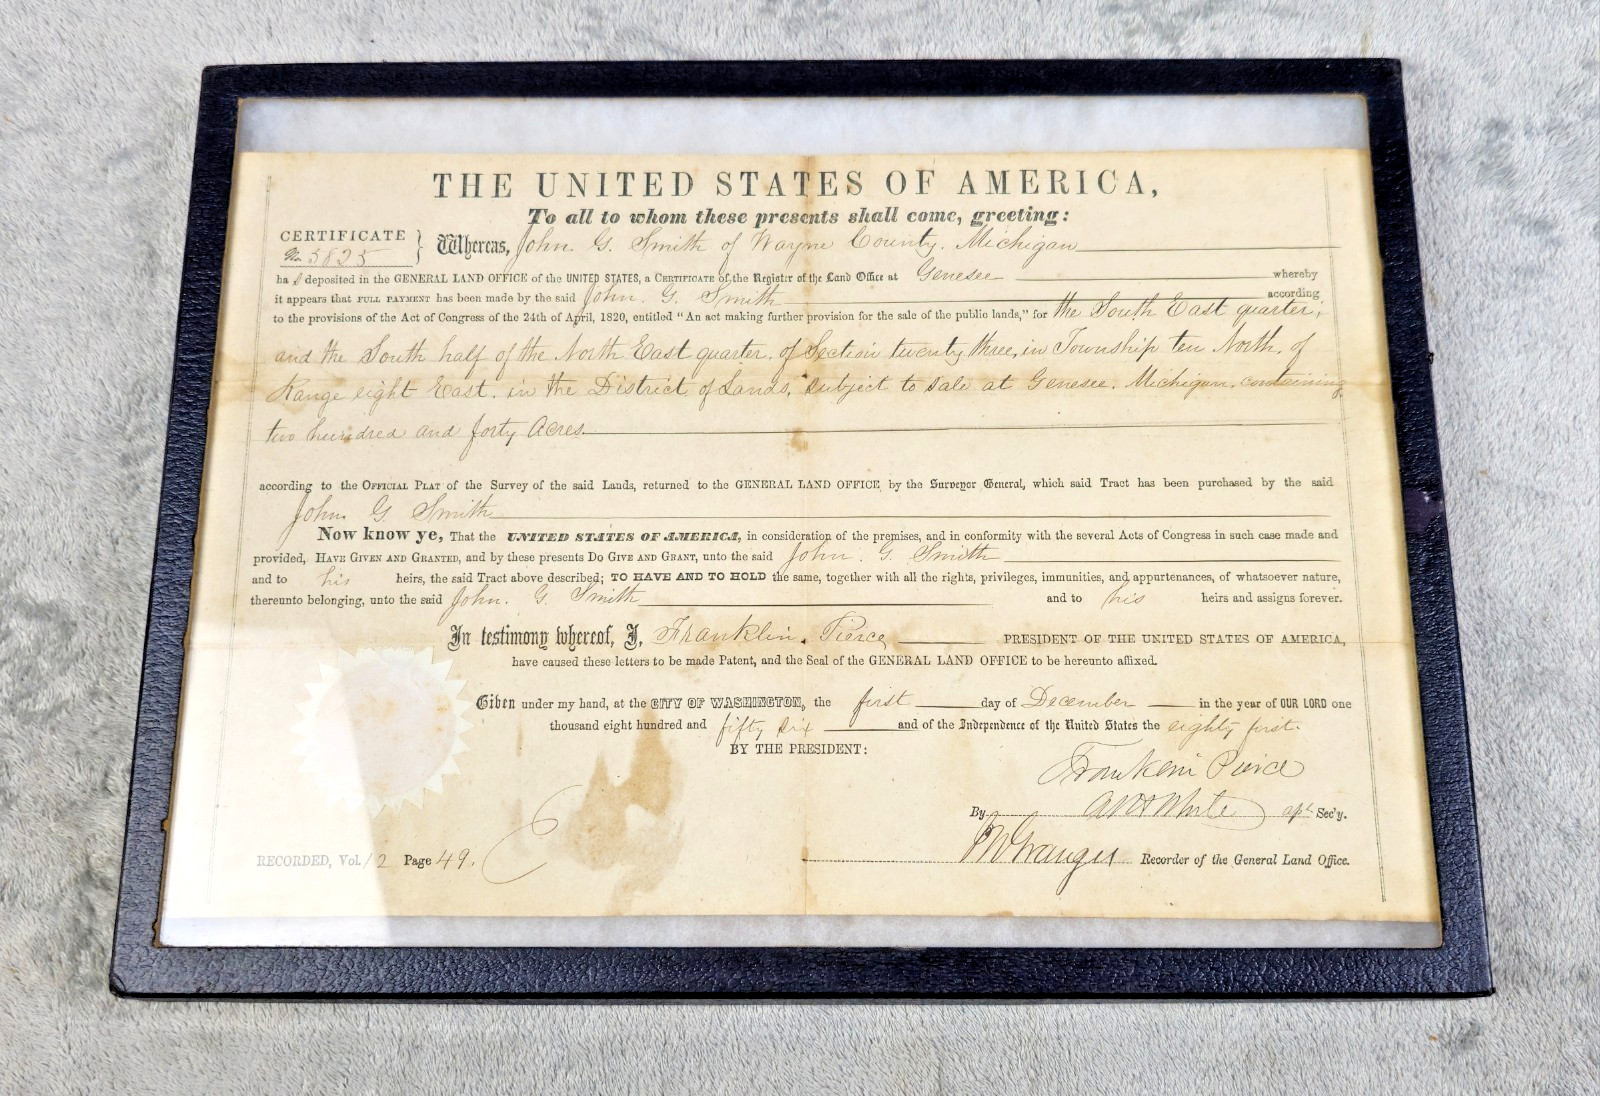 THE UNITED STATES OF AMERICA,
To all to whom these presents shall come, greeting:
CERTIFICATE
No. 5825
Whereas, John. G. Smith of Wayne County. Michigan
ha s deposited in the GENERAL LAND OFFICE of the UNITED STATES, a CERTIFICATE of the Register of the Land Office at Genesee whereby
it appears that FULL PAYMENT has been made by the said John. G. Smith according
to the provisions of the Act of Congress of the 24th of April, 1820, entitled "An act making further provision for the sale of the public lands," for the South East quarter,
and the South half of the North East quarter, of Section twenty three, in Township ten North, of
Range eight East, in the District of Lands, subject to sale at Genesee. Michigan. containing
two hundred and forty Acres
according to the OFFICIAL PLAT of the Survey of the said Lands, returned to the GENERAL LAND OFFICE by the Surveyor General, which said Tract has been purchased by the said
John. G. Smith
Now know ye, That the UNITED STATES OF AMERICA, in consideration of the premises, and in conformity with the several Acts of Congress in such case made and
provided, HAVE GIVEN AND GRANTED, and by these presents DO GIVE AND GRANT, unto the said John. G. Smith
and to his heirs, the said Tract above described; TO HAVE AND TO HOLD the same, together with all the rights, privileges, immunities, and appurtenances, of whatsoever nature,
thereunto belonging, unto the said John. G. Smith and to his heirs and assigns forever.
In testimony whereof, I, Franklin. Pierce PRESIDENT OF THE UNITED STATES OF AMERICA,
have caused these letters to be made Patent, and the Seal of the GENERAL LAND OFFICE to be hereunto affixed.
Given under my hand, at the CITY OF WASHINGTON, the first day of December in the year of OUR LORD one
thousand eight hundred and fifty six and of the Independence of the United States the eighty first.
BY THE PRESIDENT:
Franklin Pierce
By White Sec'y.
RECORDED, Vol. 12 Page 49.
Granger Recorder of the General Land Office.